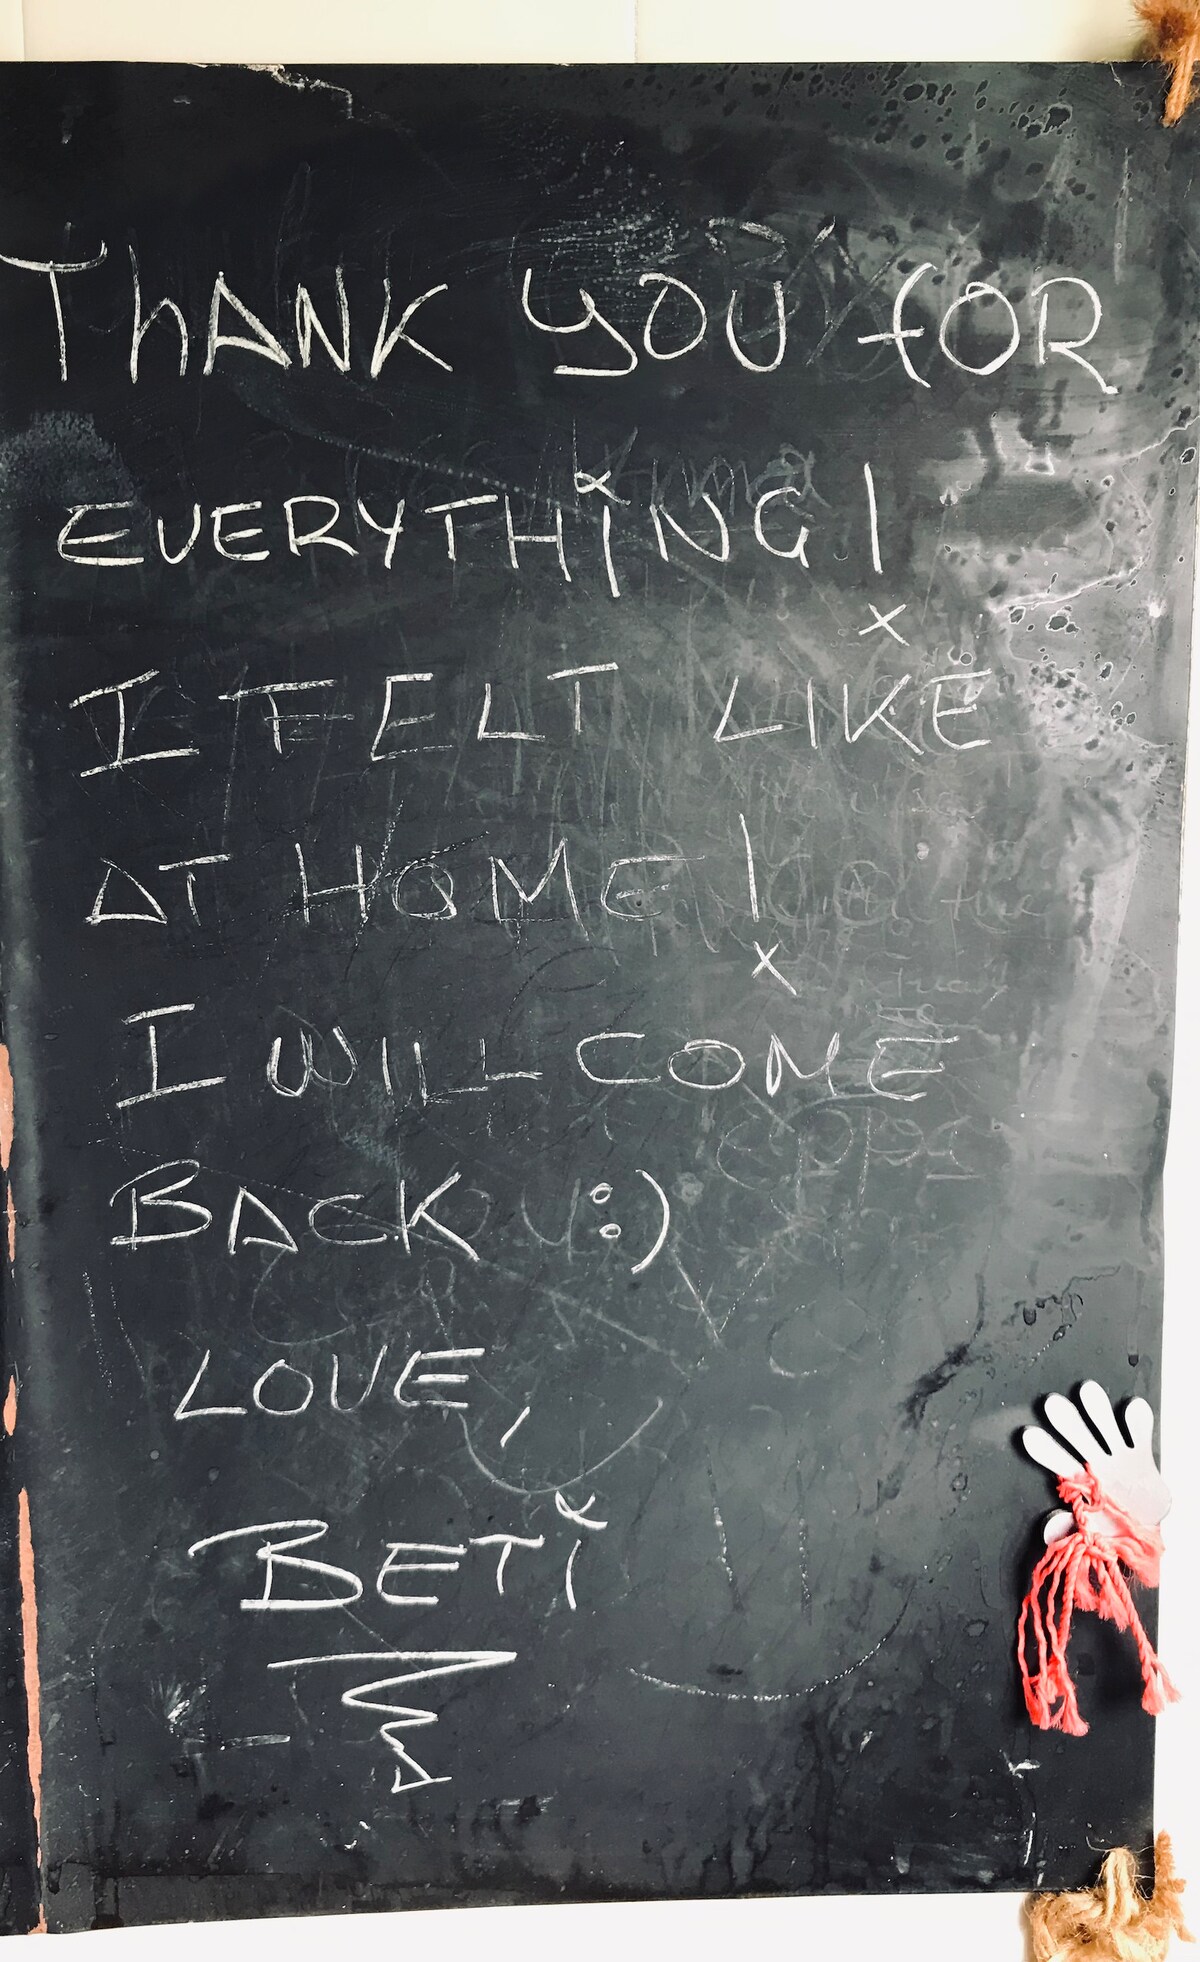 THANK YOU FOR
EVERYTHiNG!
I FELT LIKE
AT HOME!
I WILL COME
BACK :)
LOVE,
BETi